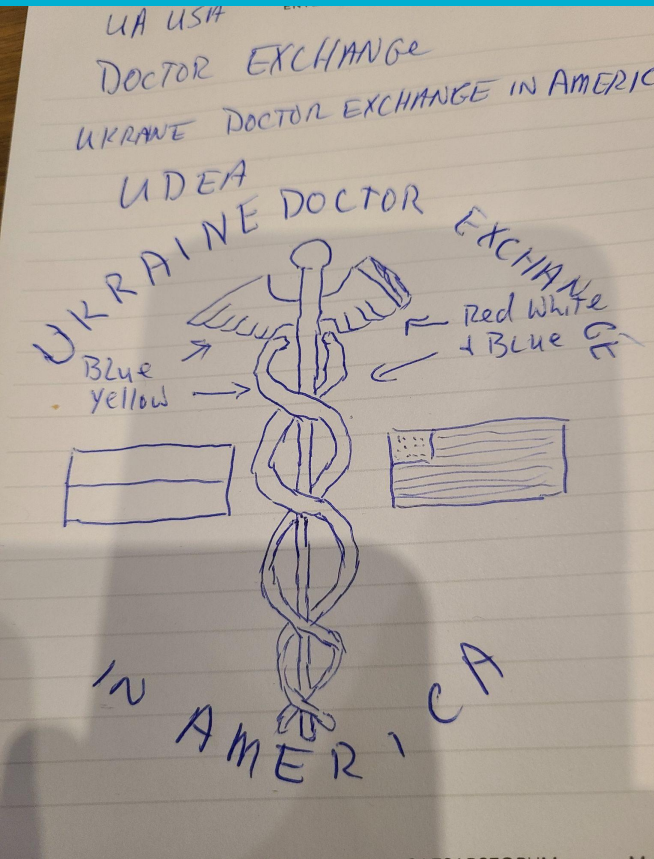 UA USA
DOCTOR EXCHANGE
UKRANE DOCTOR EXCHANGE IN AMERIC
UDEA
UKRAINE DOCTOR EXCHANGE
Red White
+ Blue
Blue
Yellow
IN AMERICA